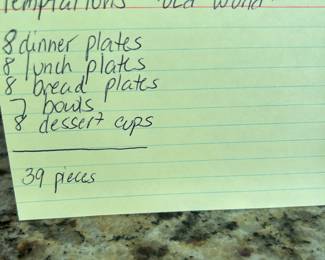 Temptations "Old World"
8 dinner plates
8 lunch plates
8 bread plates
7 bowls
8 dessert cups
39 pieces